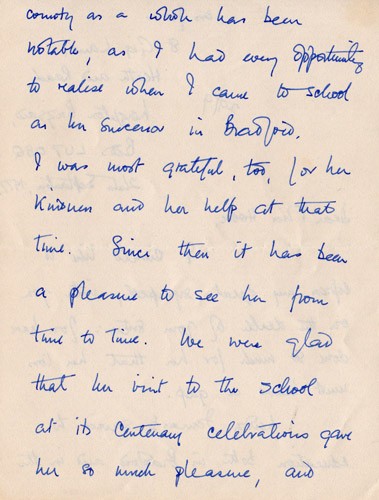 country as a whole has been
notable, as I had every opportunity
to realise when I came to school
as her successor in Bradford.
I was most grateful, too, for her
kindness and her help at that
time. Since then it has been
a pleasure to see her from
time to time. We were glad
that her visit to the school
at its Centenary celebrations gave
her so much pleasure, and